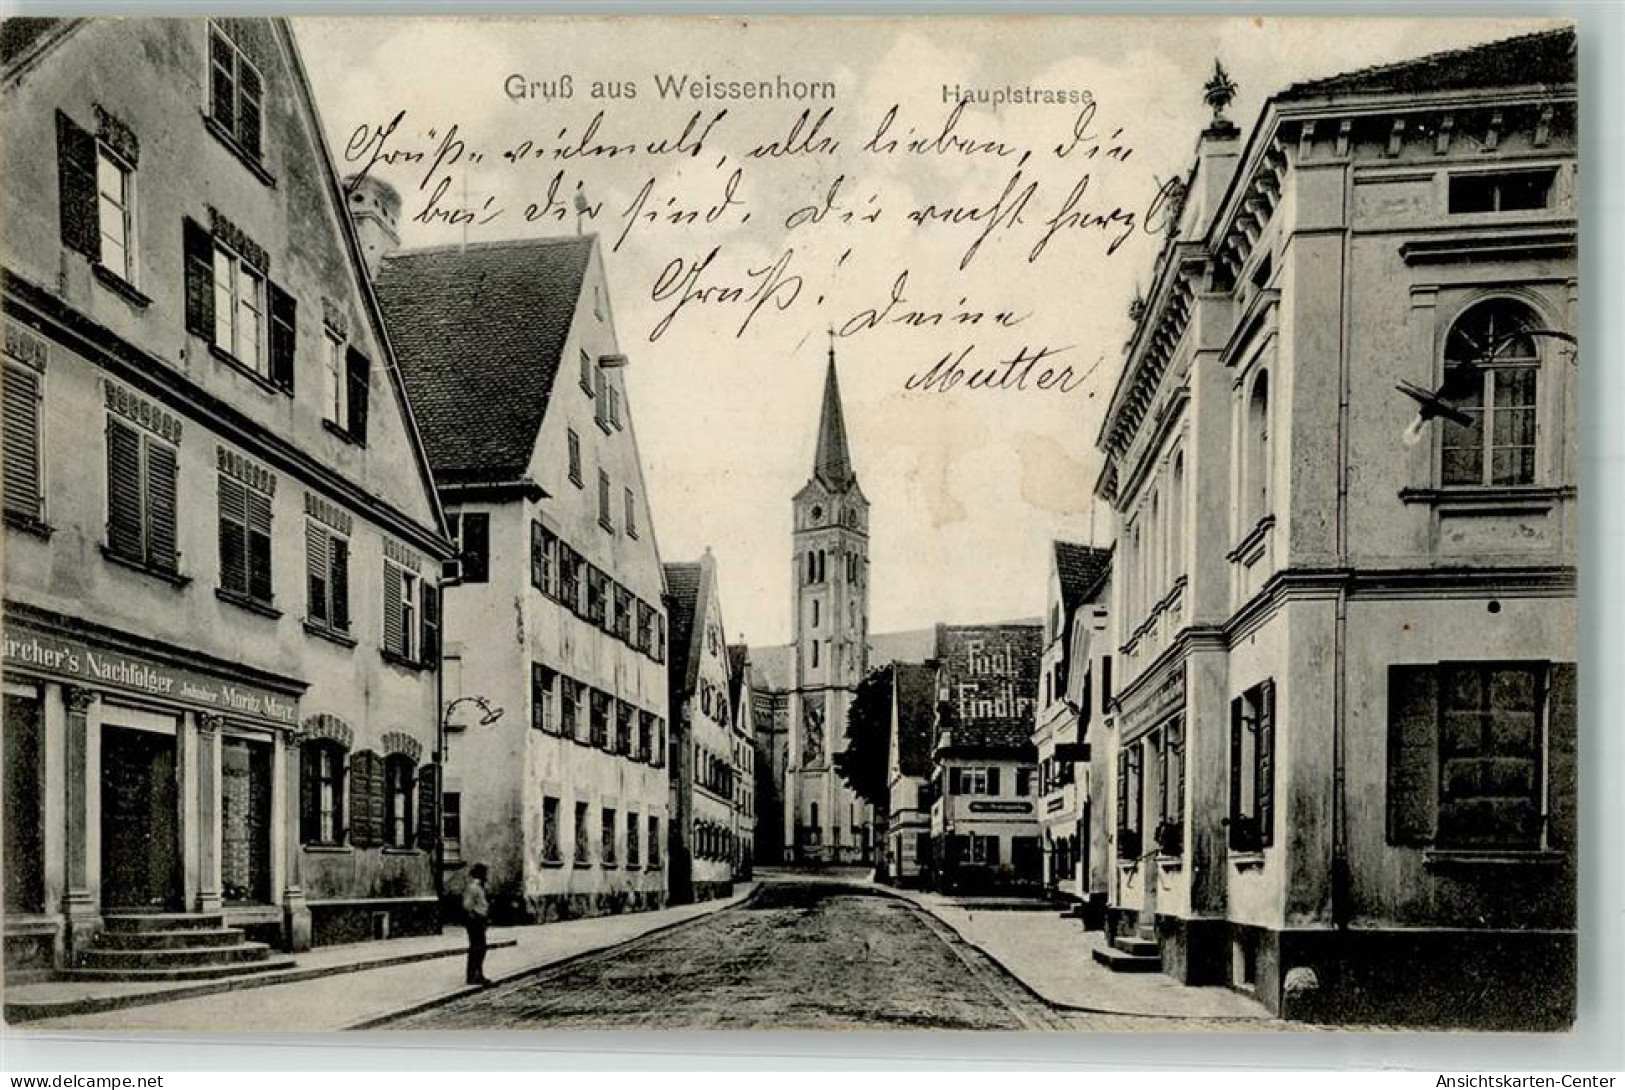 Gruß aus Weissenhorn Hauptstrasse
Grüße vielmals, alle lieben, die
bei dir sind. Dir recht herzl
Gruß! Deine
Mutter.
ircher's Nachfolger Inhaber Moritz Mayer
Paul
Findler
delcampe.net
Ansichtskarten-Center